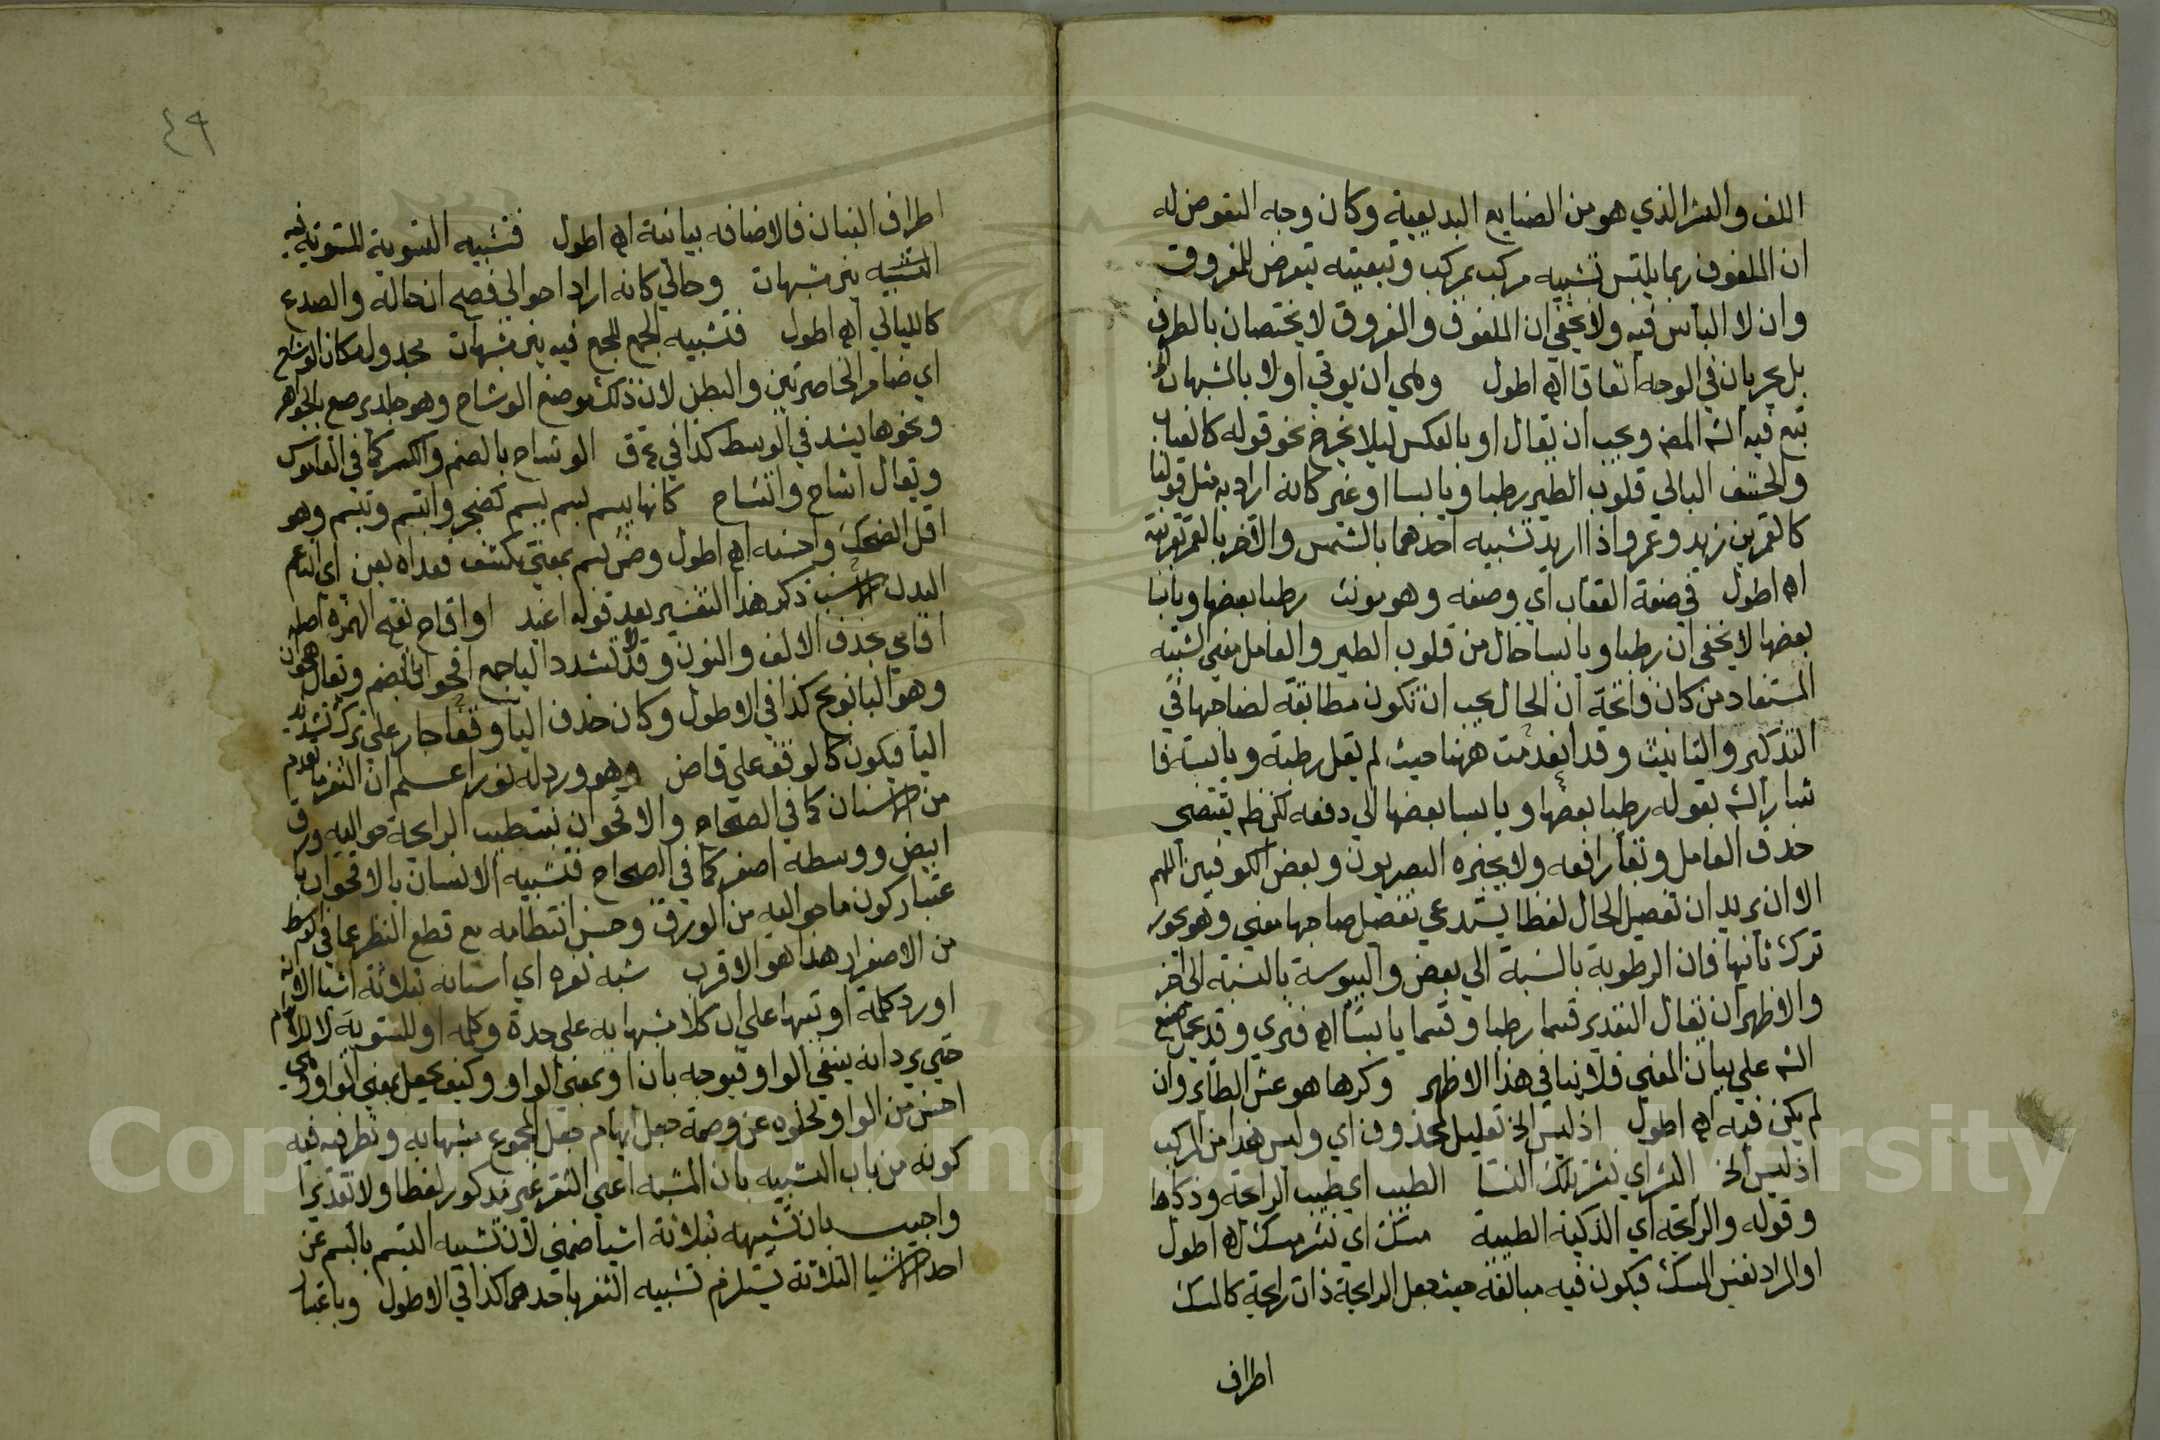 اللف والنشر الذي هو من الصنايع البديعية وكان وجه التعرض له
ان الملفوف ربما يلتبس تشبيه مركب بمركب وتبعيته تعرض للمفروق
وان لا التباس فيه ولا يخفي ان الملفوف والمفروق لا يختصان بالطرفي
بل يجريان في الوجه اتفاقا اه اطول وهي ان يوتي اولا بالمشبهات
تبع فيه الشه المص ويجب ان يقال او بالعكس ليلا يخرج نحو قوله كالعناب
والحشف البالي قلوب الطير رطبا ويابسا او غير كانه اراد به مثل قولنا
كالقمرين زيد وعمرو اذا اريد تشبيه احدهما بالشمس والاخر بالقمر
اه اطول في صفة العقاب اي وصفه وهو مونث رطبا بعضها ويابسا
بعضها لا يخفي ان رطبا ويابسا حال من قلوب الطير والعامل معني التشبيه
المستفاد من كان فاتجه ان الحال يجب ان تكون مطابقة لصاحبها في
التذكير والتانيث وقد انعدمت ههنا حيث لم يقل رطبة ويابسة فا
شار الشه بقوله رطبا بعضها ويابسا بعضها الي دفعه لكن ظ يقتضي
حذف العامل وبقا رافعه ولا يجيزه البصريون وبعض الكوفيين اللهم
الا ان يريد ان تفصيل الحال لفظا يستدعي تفصيل صاحبها معني وهو يجوز
ترك ثانيها فان الرطوبة بالنسبة الي بعض واليبوسة بالنسبة الي اخر
والاظهر ان يقال التقدير قسما رطبا وقسما يابسا اه فنري وقد يحمل صنيع
الشه علي بيان المعني فلا ينافي هذا الاظهر وكرها هو عش الطاير وان
لم يكن فيه اه اطول اذ ليس الخ تعليل لمحذوف اي وليس هذا من المركب
اذ ليس الخ النشر اي نشر تلك النسا الطيب اي طيب الرايحة وذكاها
وقوله والرايحة اي الذكية الطيبة مسك اي نشر مسك اه اطول
او المراد نفس المسك فيكون فيه مبالغة حيث جعل الرايحة ذات رايحة كالمسك
اطراف
٤٩
اطراف البنان فالاضافه بيانية اه اطول فتشبيه التسوية للتسوية فيه
التشبيه بين مشبهات وحالي كانه اراد احوالي فصح ان حاله والصدغ
كالليالي اه اطول فتشبيه الجمع للجمع فيه بين مشبهات مجدول مكان الوشاح
اي ضامر الخاصرتين والبطن لان ذلك موضع الوشاح وهو جلد يرصع بالجواهر
ونحوها يشد في الوسط كذا في ق الوشاح بالضم والكسر كما في القاموس
ويقال اشاح وانشاح كانها يبسم بسم يبسم كضجر وابتسم وتبسم وهو
اقل الضحك واحسنه اه اطول وضمن يبسم بمعني يكشف فعداه بعن اي الناعم
البدن الانسب ذكر هذا التفسير بعد قوله اغيد او اقاح بفتح الهمزه اصله
اقاحي بحذف الالف والنون وقد لا تشدد اليا جمع اقحوان بالضم ويقال قحوان
وهو البابونج كذا في الاطول وكان حذف اليا وقفا جار علي ترك تشديد
اليا فيكون كالوقف علي قاض وهو ورد له نور اعلم ان الثغر ما تقدم
من الاسنان كما في الصحاح والاقحوان نبت طيب الرايحة حواليه ورق
ابيض ووسطه اصفر كما في الصحاح فتشبيه الاسنان بالاقحوان با
عتبار كون ما حواليه من الورق وحسن انتظامه مع قطع النظر عما في الوسط
من الاصفرار هذا هو الاقرب شبه ثغره اي اسنانه بثلاثة اشيا الا انه
اورد كلمة او تنبيها علي ان كلا مشبها به علي حدة وكلمة او للتسوية لا للابهام
حتي يرد انه ينبغي الواو فيوجه بان او بمعني الواو وكيف يجعل بمعني الواو وهي
احسن من الواو لخلوه عن وصمة جعل ايهام جعل المجموع مشبها به ونظر فيه فيه
كونه من باب التشبيه بان المشبه اعني الثغر غير مذكور لفظا ولا تقديرا
واجيب بان تشبيهه بثلاثة اشيا ضمني لان تشبيه التبسم بالبسم عن
احد الاشيا الثلاثة يستلزم تشبيه الثغر باحدهما كذا في الاطول وباعتبار